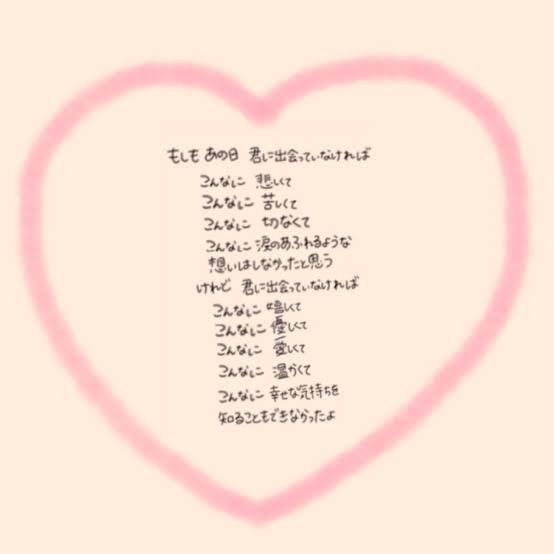 もしも あの日 君に出会っていなければ
こんなに 悲しくて
こんなに 苦しくて
こんなに 切なくて
こんなに 涙のあふれるような
想いはしなかったと思う
けれど 君に出会っていなければ
こんなに 嬉しくて
こんなに 優しくて
こんなに 愛しくて
こんなに 温かくて
こんなに 幸せな気持ちを
知ることもできなかったよ